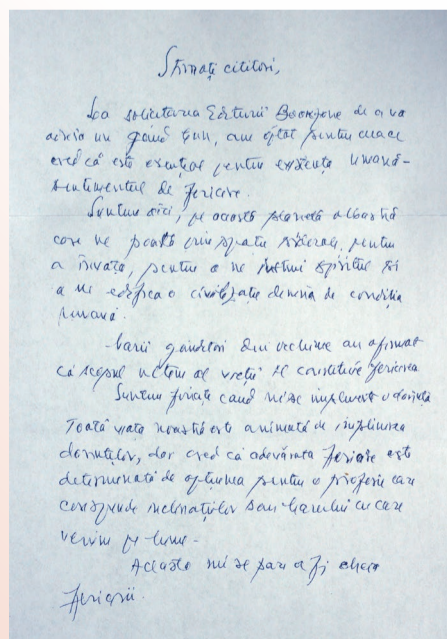 Stimați cititori,
La solicitarea Editurii Bookzone de a vă
adresa un gând bun, am optat pentru ceea ce
cred că este esențial pentru existența umană -
sentimentul de fericire.
Suntem aici, pe această planetă albastră
care ne poartă prin spații siderale, pentru
a învăța, pentru a ne instrui spiritul și
a ne edifica o civilizație demnă de condiția
umană.
Marii gânditori din vechime au afirmat
că scopul ultim al vieții îl constituie fericirea
Suntem fericiți când ni se împlinește o dorință
Toată viața noastră este animată de împlinirea
dorințelor, dar cred că adevărata fericire este
determinată de opțiunea pentru o profesie care
corespunde înclinațiilor sau harului cu care
venim pe lume -
Aceasta mi se pare a fi cheia
fericirii.